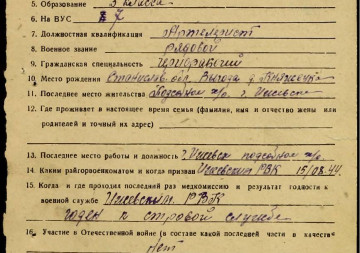 5. Образование 3 класса
6. На ВУС № 7
7. Должностная квалификация Артелерист
8. Военное звание рядовой
9. Гражданская специальность
10. Место рождения Станислав. обл. Выгода д.
11. Последнее место жительства Подсобное х/о. г. Ижевск
12. Где проживает в настоящее время семья (фамилия, имя и отчество жены или
родителей и точный их адрес)
13. Последнее место работы и должность г. Ижевск подсобное х/о.
14. Каким райгорвоенкоматом и когда призван Ижевским РВК 15/08.44.
15. Когда и где проходил последний раз медкомиссию и результат годности к
военной службе Ижевским. РВК
годен к строевой службе
16. Участие в Отечественной войне (в составе какой последней части в качеств
Нет